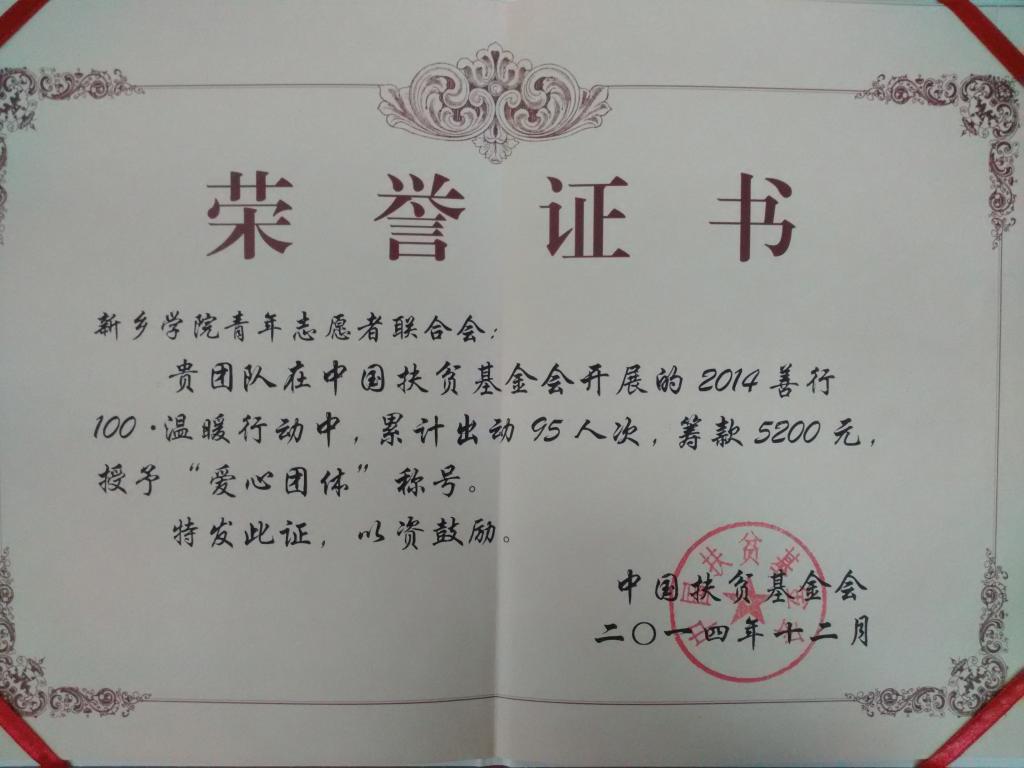 荣誉证书
新乡学院青年志愿者联合会：
贵团队在中国扶贫基金会开展的2014善行
100·温暖行动中，累计出动95人次，筹款5200元，
授予“爱心团体”称号。
特发此证，以资鼓励。
中国扶贫基金会
中国扶贫基金会
二〇一四年十二月